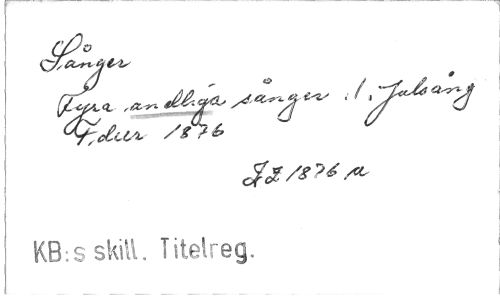 Sånger
Fyra andliga sånger. 1. Julsång
T.deer 1876
1876
KB:s skill. Titelreg.